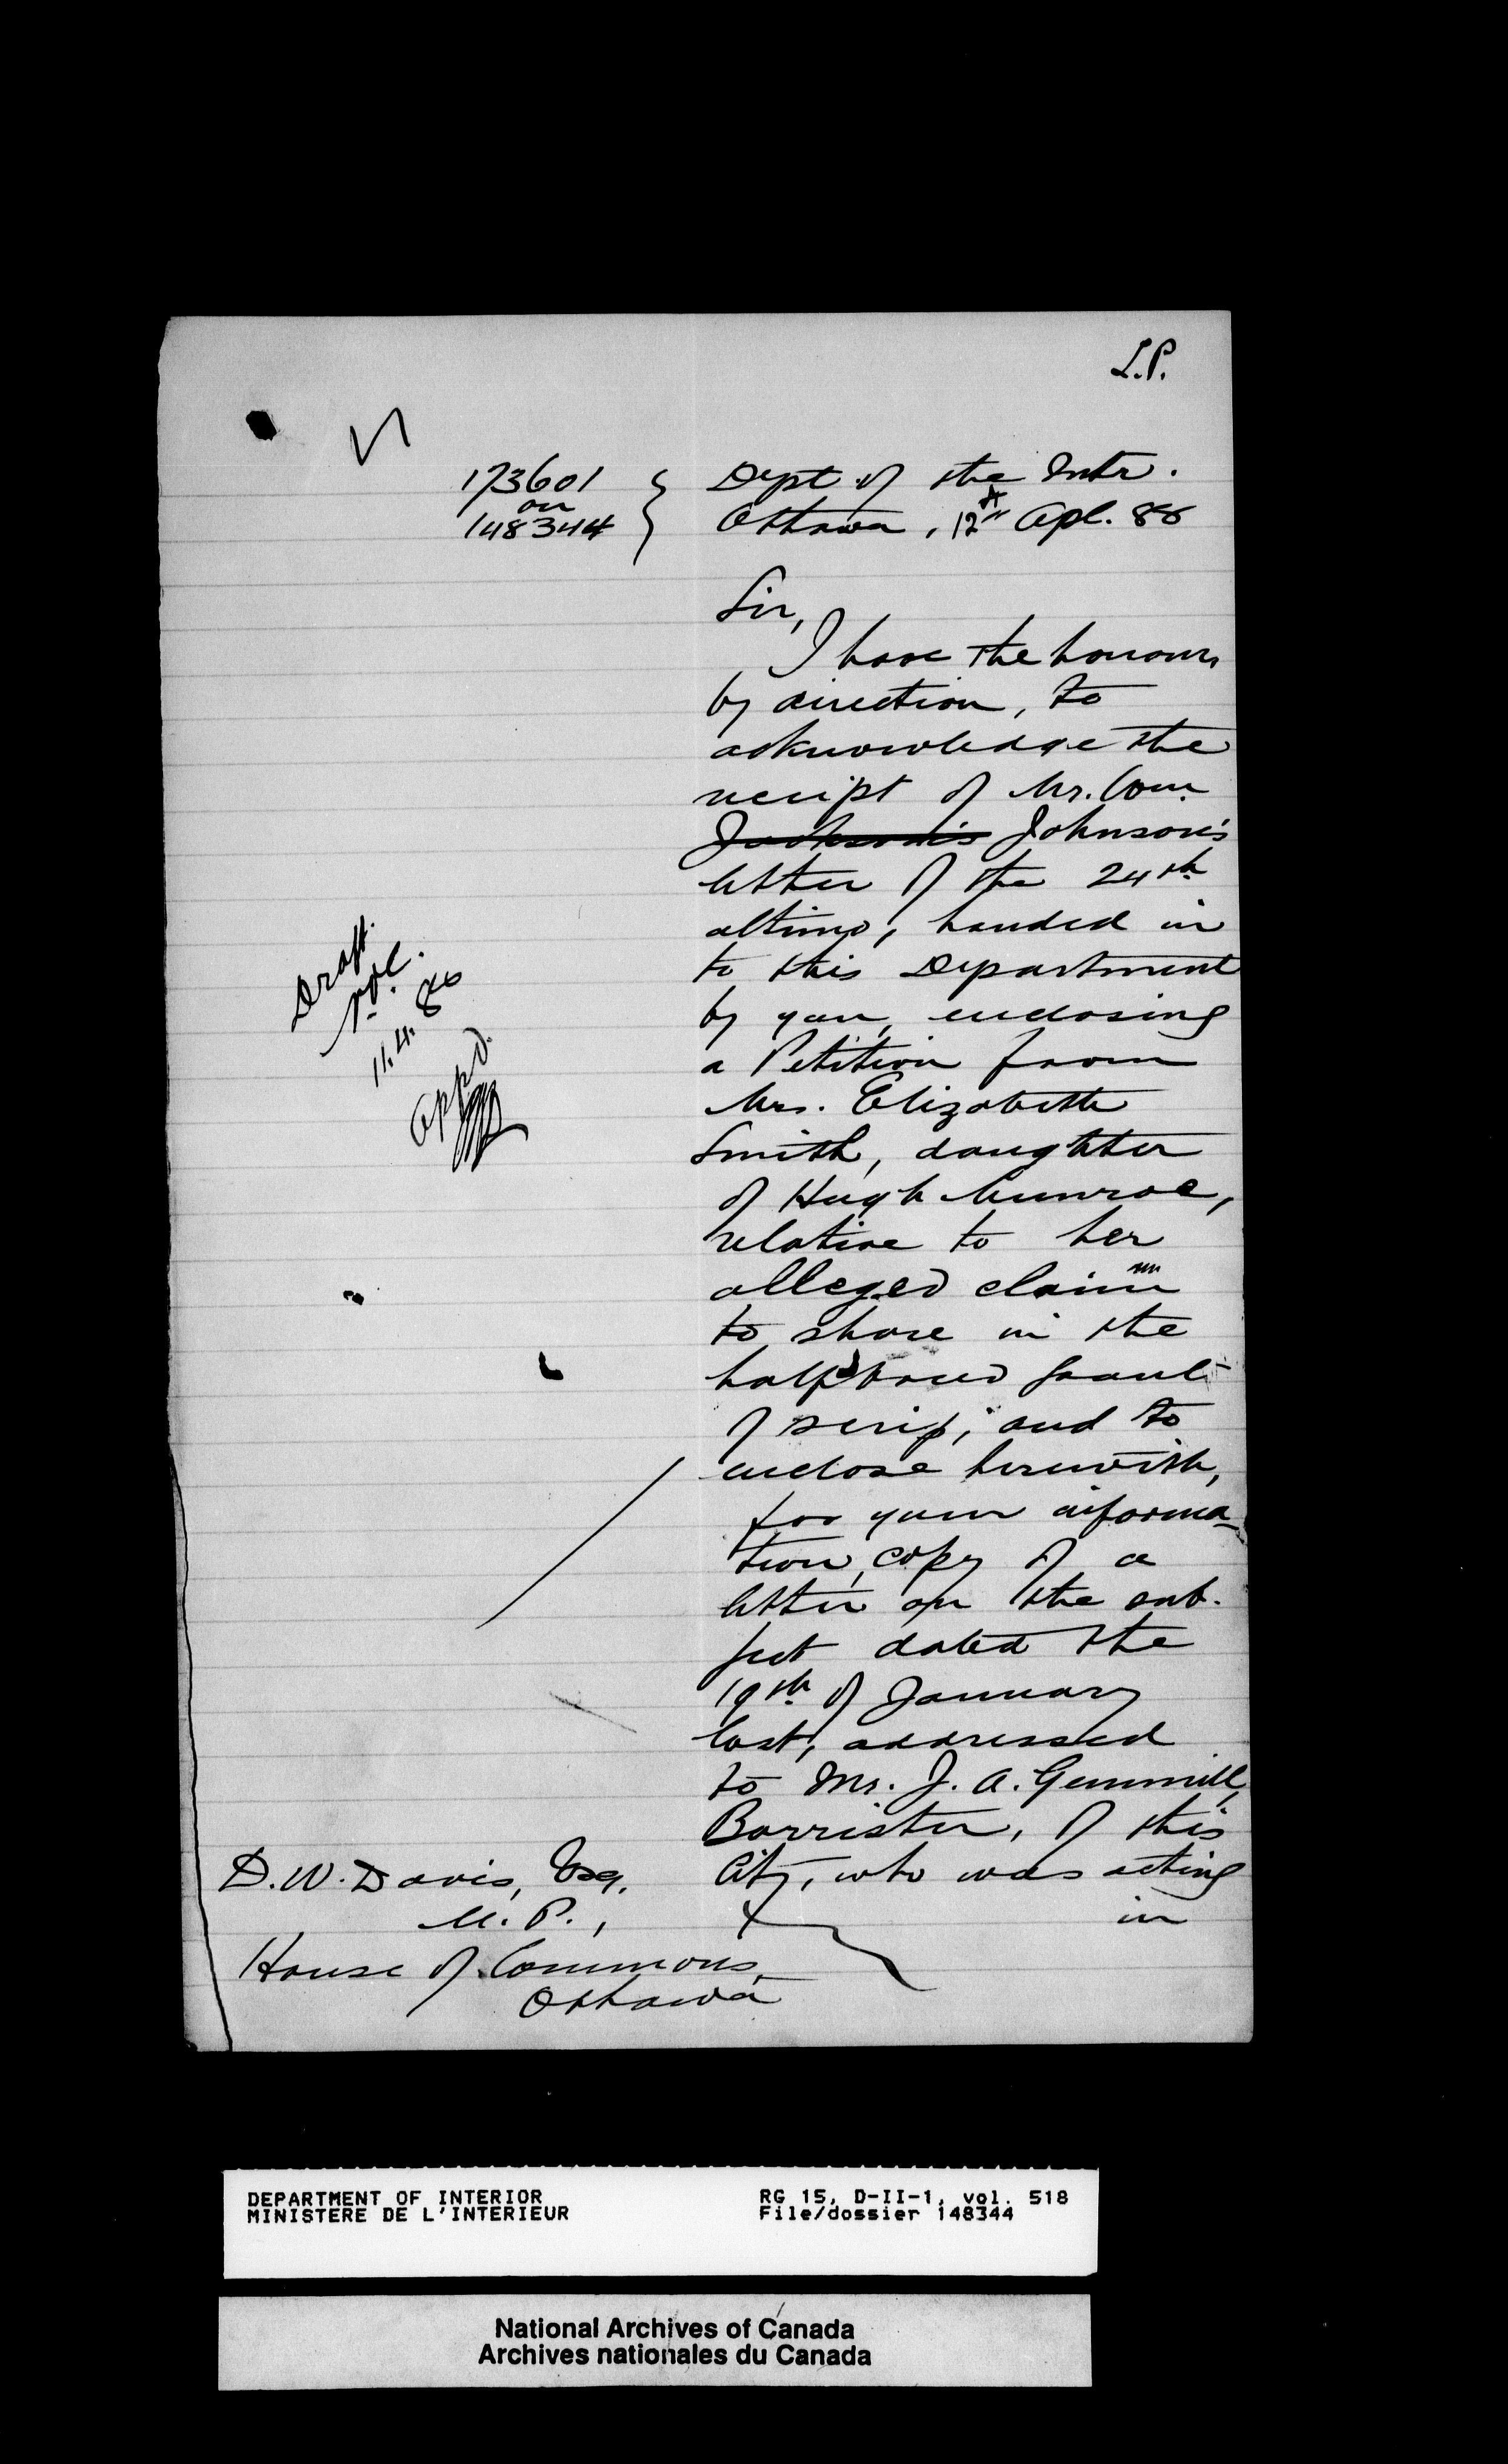 L.P.
173601
on
148344
Dept of the Intr.
Ottawa, 12th Apl. 88
Sir,
I have the honour,
by direction, to
acknowledge the
receipt of Mr. Wm.
Jackson's Johnson's
letter of the 24th
ultimo, handed in
to this Department
by you, enclosing
a Petition from
Mrs. Elizabeth
Smith, daughter
of Hugh Munroe,
relative to her
alleged claim
to share in the
halfbreed grant
of scrip; and to
enclose herewith,
for your informa-
tion, copy of a
letter on the sub-
ject dated the
19th of January
last, addressed
to Mr. J. A. Gemmill,
Barrister, of this
City, who was acting
in
Draft.
11.4.88
appd.
D.W. Davis, Esq.
M.P.,
House of Commons,
Ottawa
DEPARTMENT OF INTERIOR
MINISTERE DE L'INTERIEUR
RG 15, D-II-1, vol. 518
File/dossier 148344
National Archives of Canada
Archives nationales du Canada